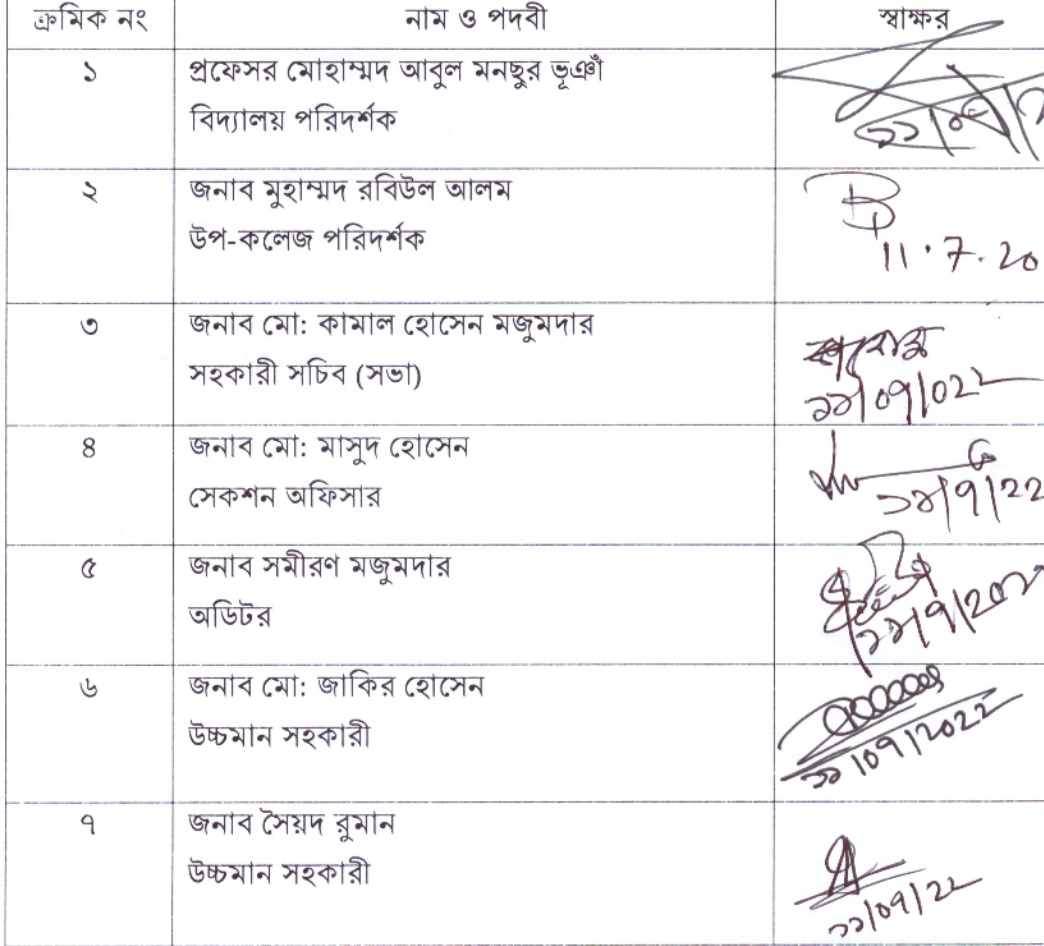 ক্রমিক নং নাম ও পদবী স্বাক্ষর
১ প্রফেসর মোহাম্মদ আবুল মনছুর ভূঞাঁ
বিদ্যালয় পরিদর্শক
২ জনাব মুহাম্মদ রবিউল আলম
উপ-কলেজ পরিদর্শক
11.7.20
৩ জনাব মো: কামাল হোসেন মজুমদার
সহকারী সচিব (সভা)
৪ জনাব মো: মাসুদ হোসেন
সেকশন অফিসার
৫ জনাব সমীরণ মজুমদার
অডিটর
৬ জনাব মো: জাকির হোসেন
উচ্চমান সহকারী
৭ জনাব সৈয়দ রুমান
উচ্চমান সহকারী